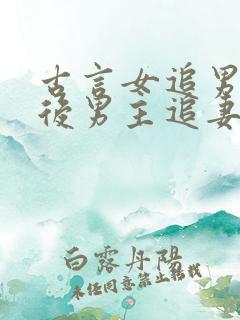 古言女追男
後男主追妻
白露丹陽
未经同意禁止转载